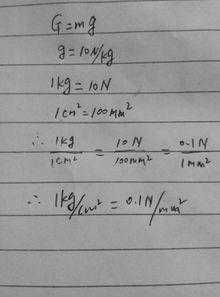 G=mg
g=10N/kg
1kg=10N
1cm²=100mm²
∴ 1kg/1cm² = 10N/100mm² = 0.1N/1mm²
∴ 1kg/cm² = 0.1N/mm²